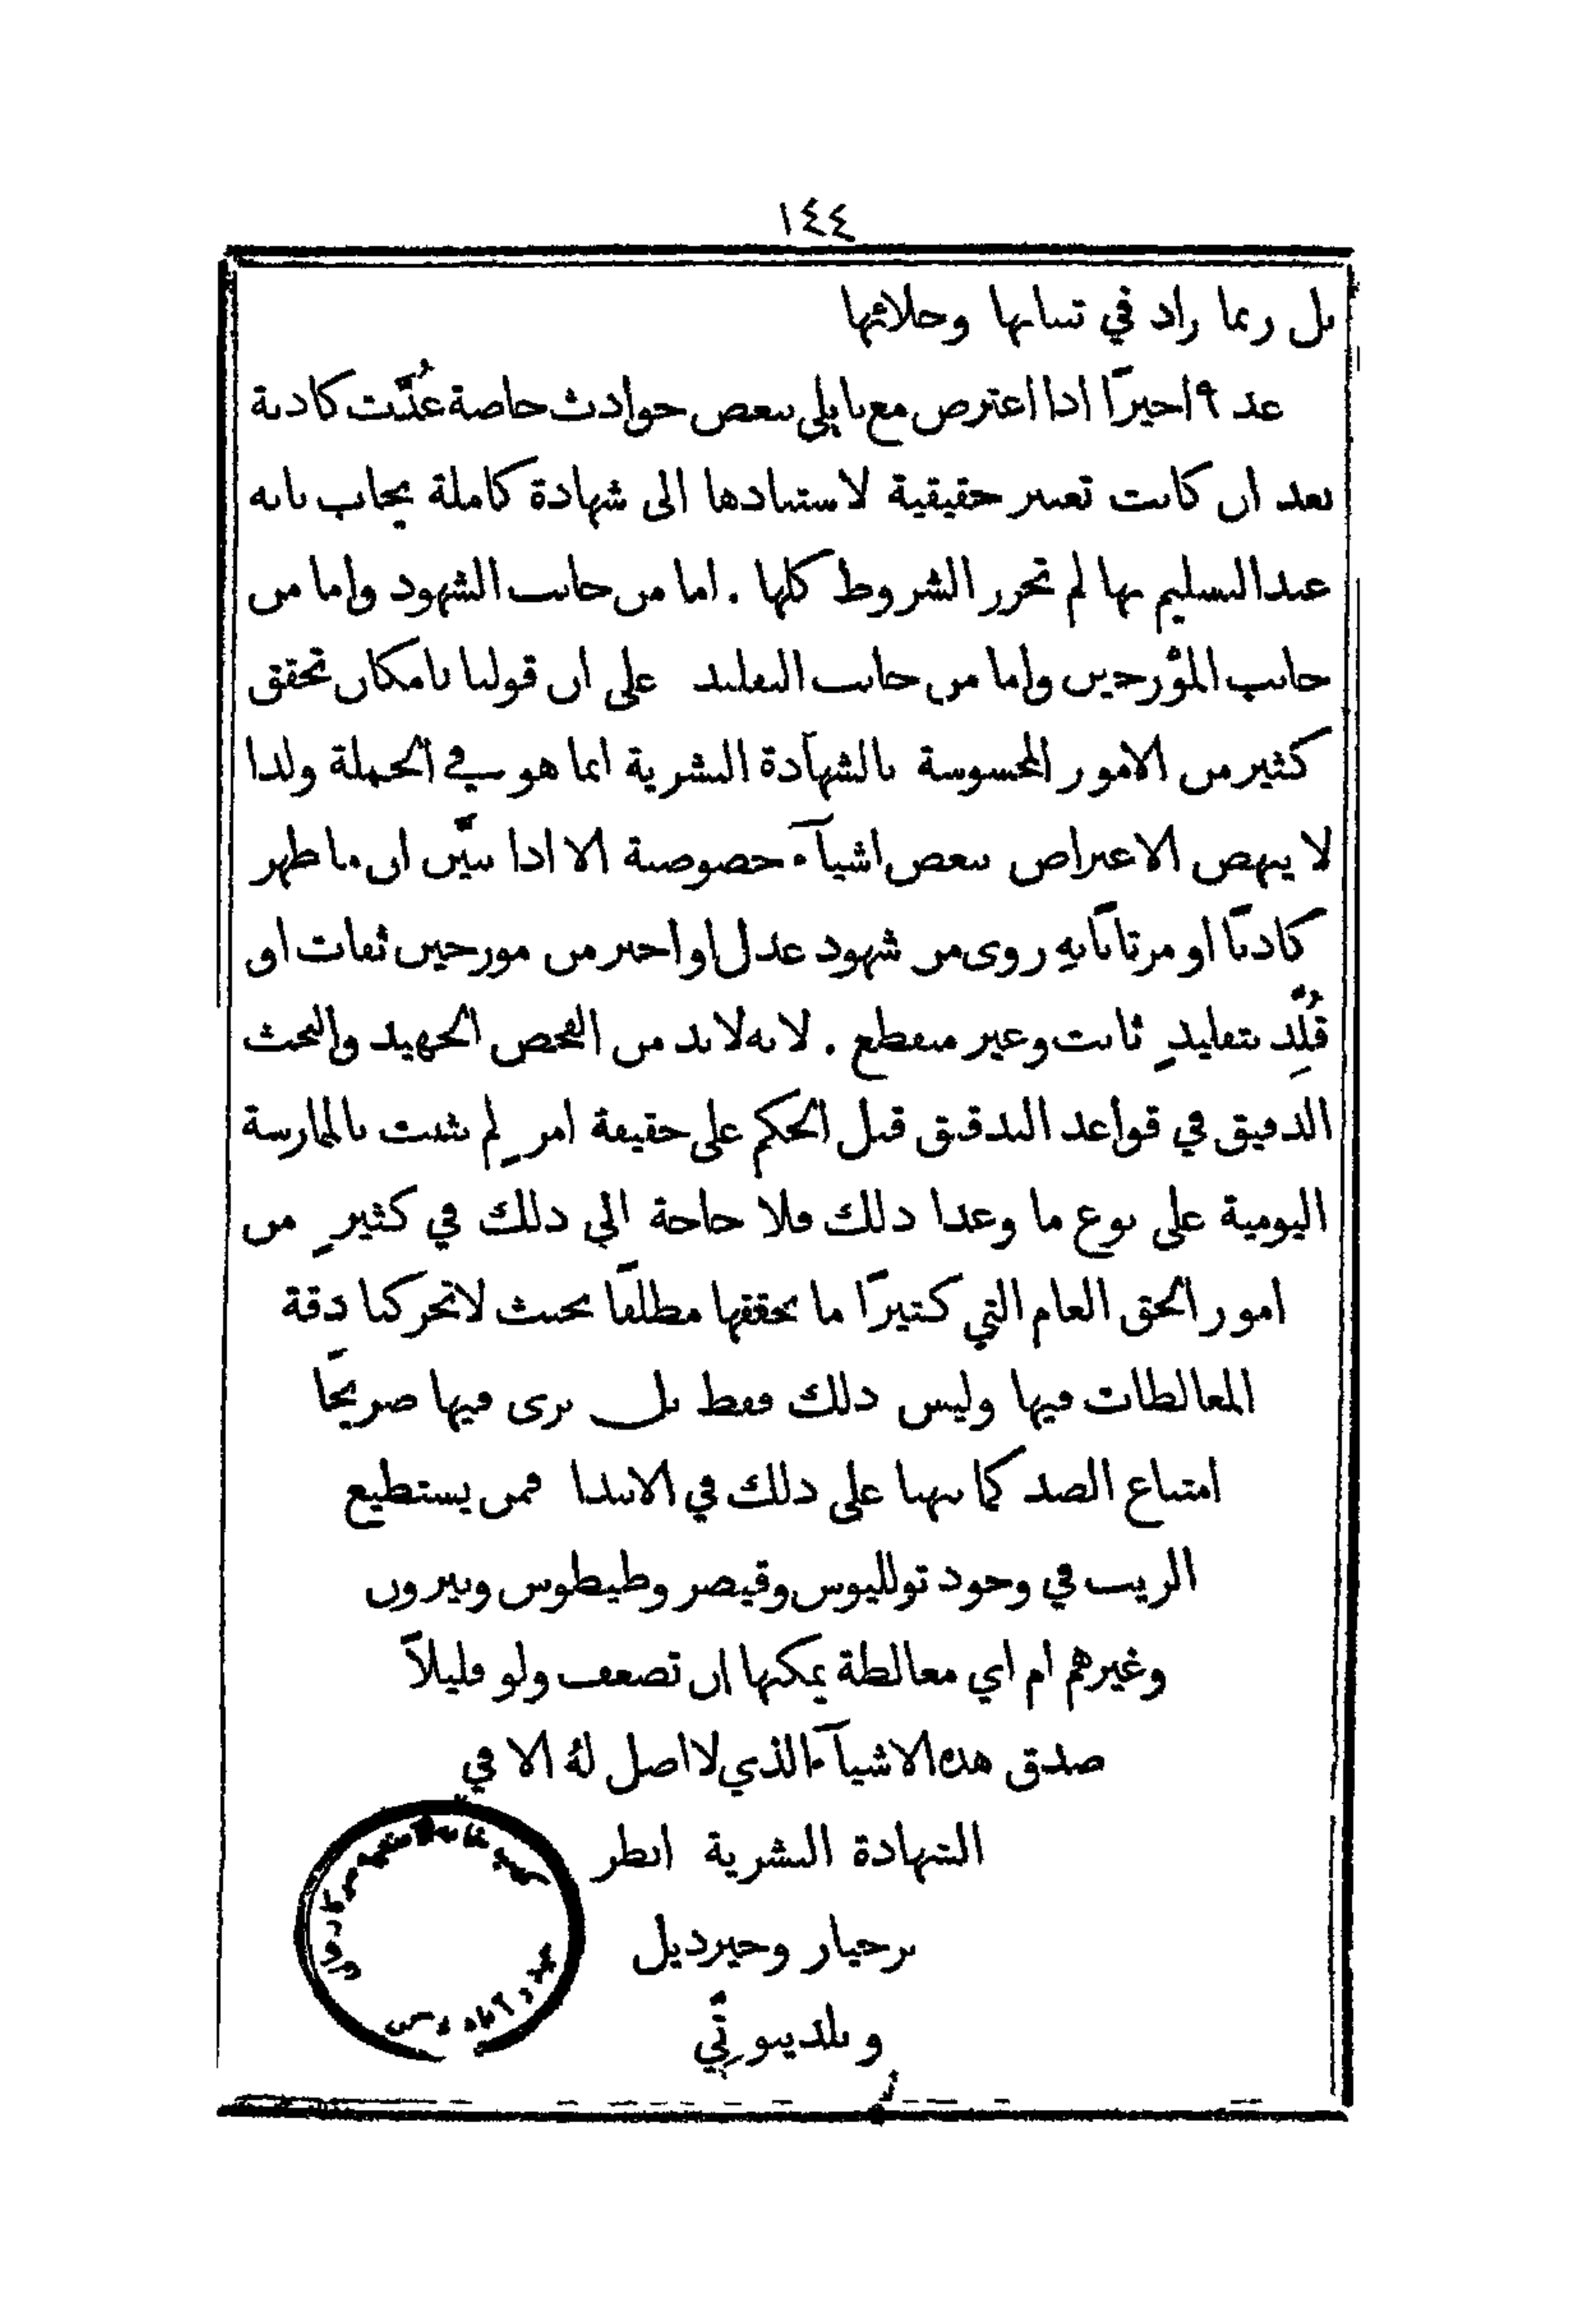 ١٤٤
بل ربما زاد في تبيانها وجلائها
عد ٩ اخيرًا اذا اعترض مع بايلي ببعض حوادث خاصة عُدَّت كاذبة
بعد ان كانت تعتبر حقيقية لاستنادها الى شهادة كاملة يجاب بانه
عند التسليم بها لم تحرر الشروط كلها . اما من جانب الشهود واما من
جانب المؤرخين واما من جانب التقليد على ان قولنا بامكان تحقق
كثير من الامور المحسوسة بالشهادة البشرية انما هو في الجملة ولذا
لا ينهض الاعتراض ببعض اشيآء خصوصية الا اذا تبيَّن ان ما ظهر
كاذبًا او مرتابًا به روي من شهود عدل او اخبر من مورخين ثقات او
قُلِّد بتقليدٍ ثابت وغير منقطع . لانه لا بد من الفحص الجهيد والبحث
الدقيق في قواعد التدقيق قبل الحكم على حقيقة امرٍ لم يثبت بالممارسة
اليومية على نوع ما وعدا ذلك فلا حاجة الى ذلك في كثيرٍ من
امور الحق العام التي كثيرًا ما نحققها مطلقًا بحيث لا تحركنا دقة
المغالطات فيها وليس ذلك فقط بل نرى فيها صريحًا
امتناع الضد كما نبهنا على ذلك في الابتدا فمن يستطيع
الريب في وجود تولليوس وقيصر وطيطوس ونيرون
وغيرهم ام اي مغالطة يمكنها ان تضعف ولو قليلاً
صدق هذه الاشيآء الذي لا اصل لهُ الا في
الشهادة البشرية انظر
برجيار وجيرديل
وبلدينوتّي